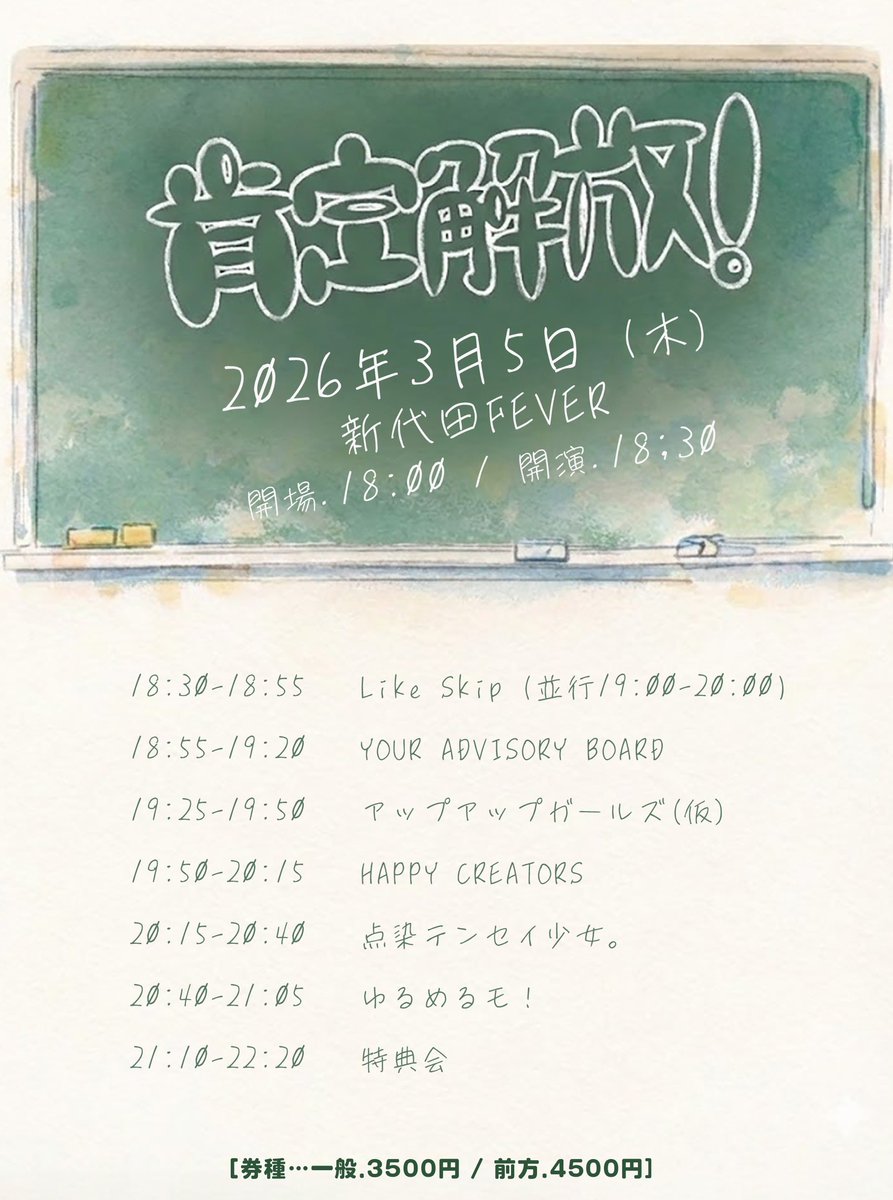 肯定解放!
2026年3月5日（木）
新代田FEVER
開場.18:00 / 開演.18:30
18:30-18:55 Like Skip (並行19:00-20:00)
18:55-19:20 YOUR ADVISORY BOARD
19:25-19:50 アップアップガールズ(仮)
19:50-20:15 HAPPY CREATORS
20:15-20:40 点染テンセイ少女。
20:40-21:05 ゆるめるモ！
21:10-22:20 特典会
[券種…一般.3500円 / 前方.4500円]